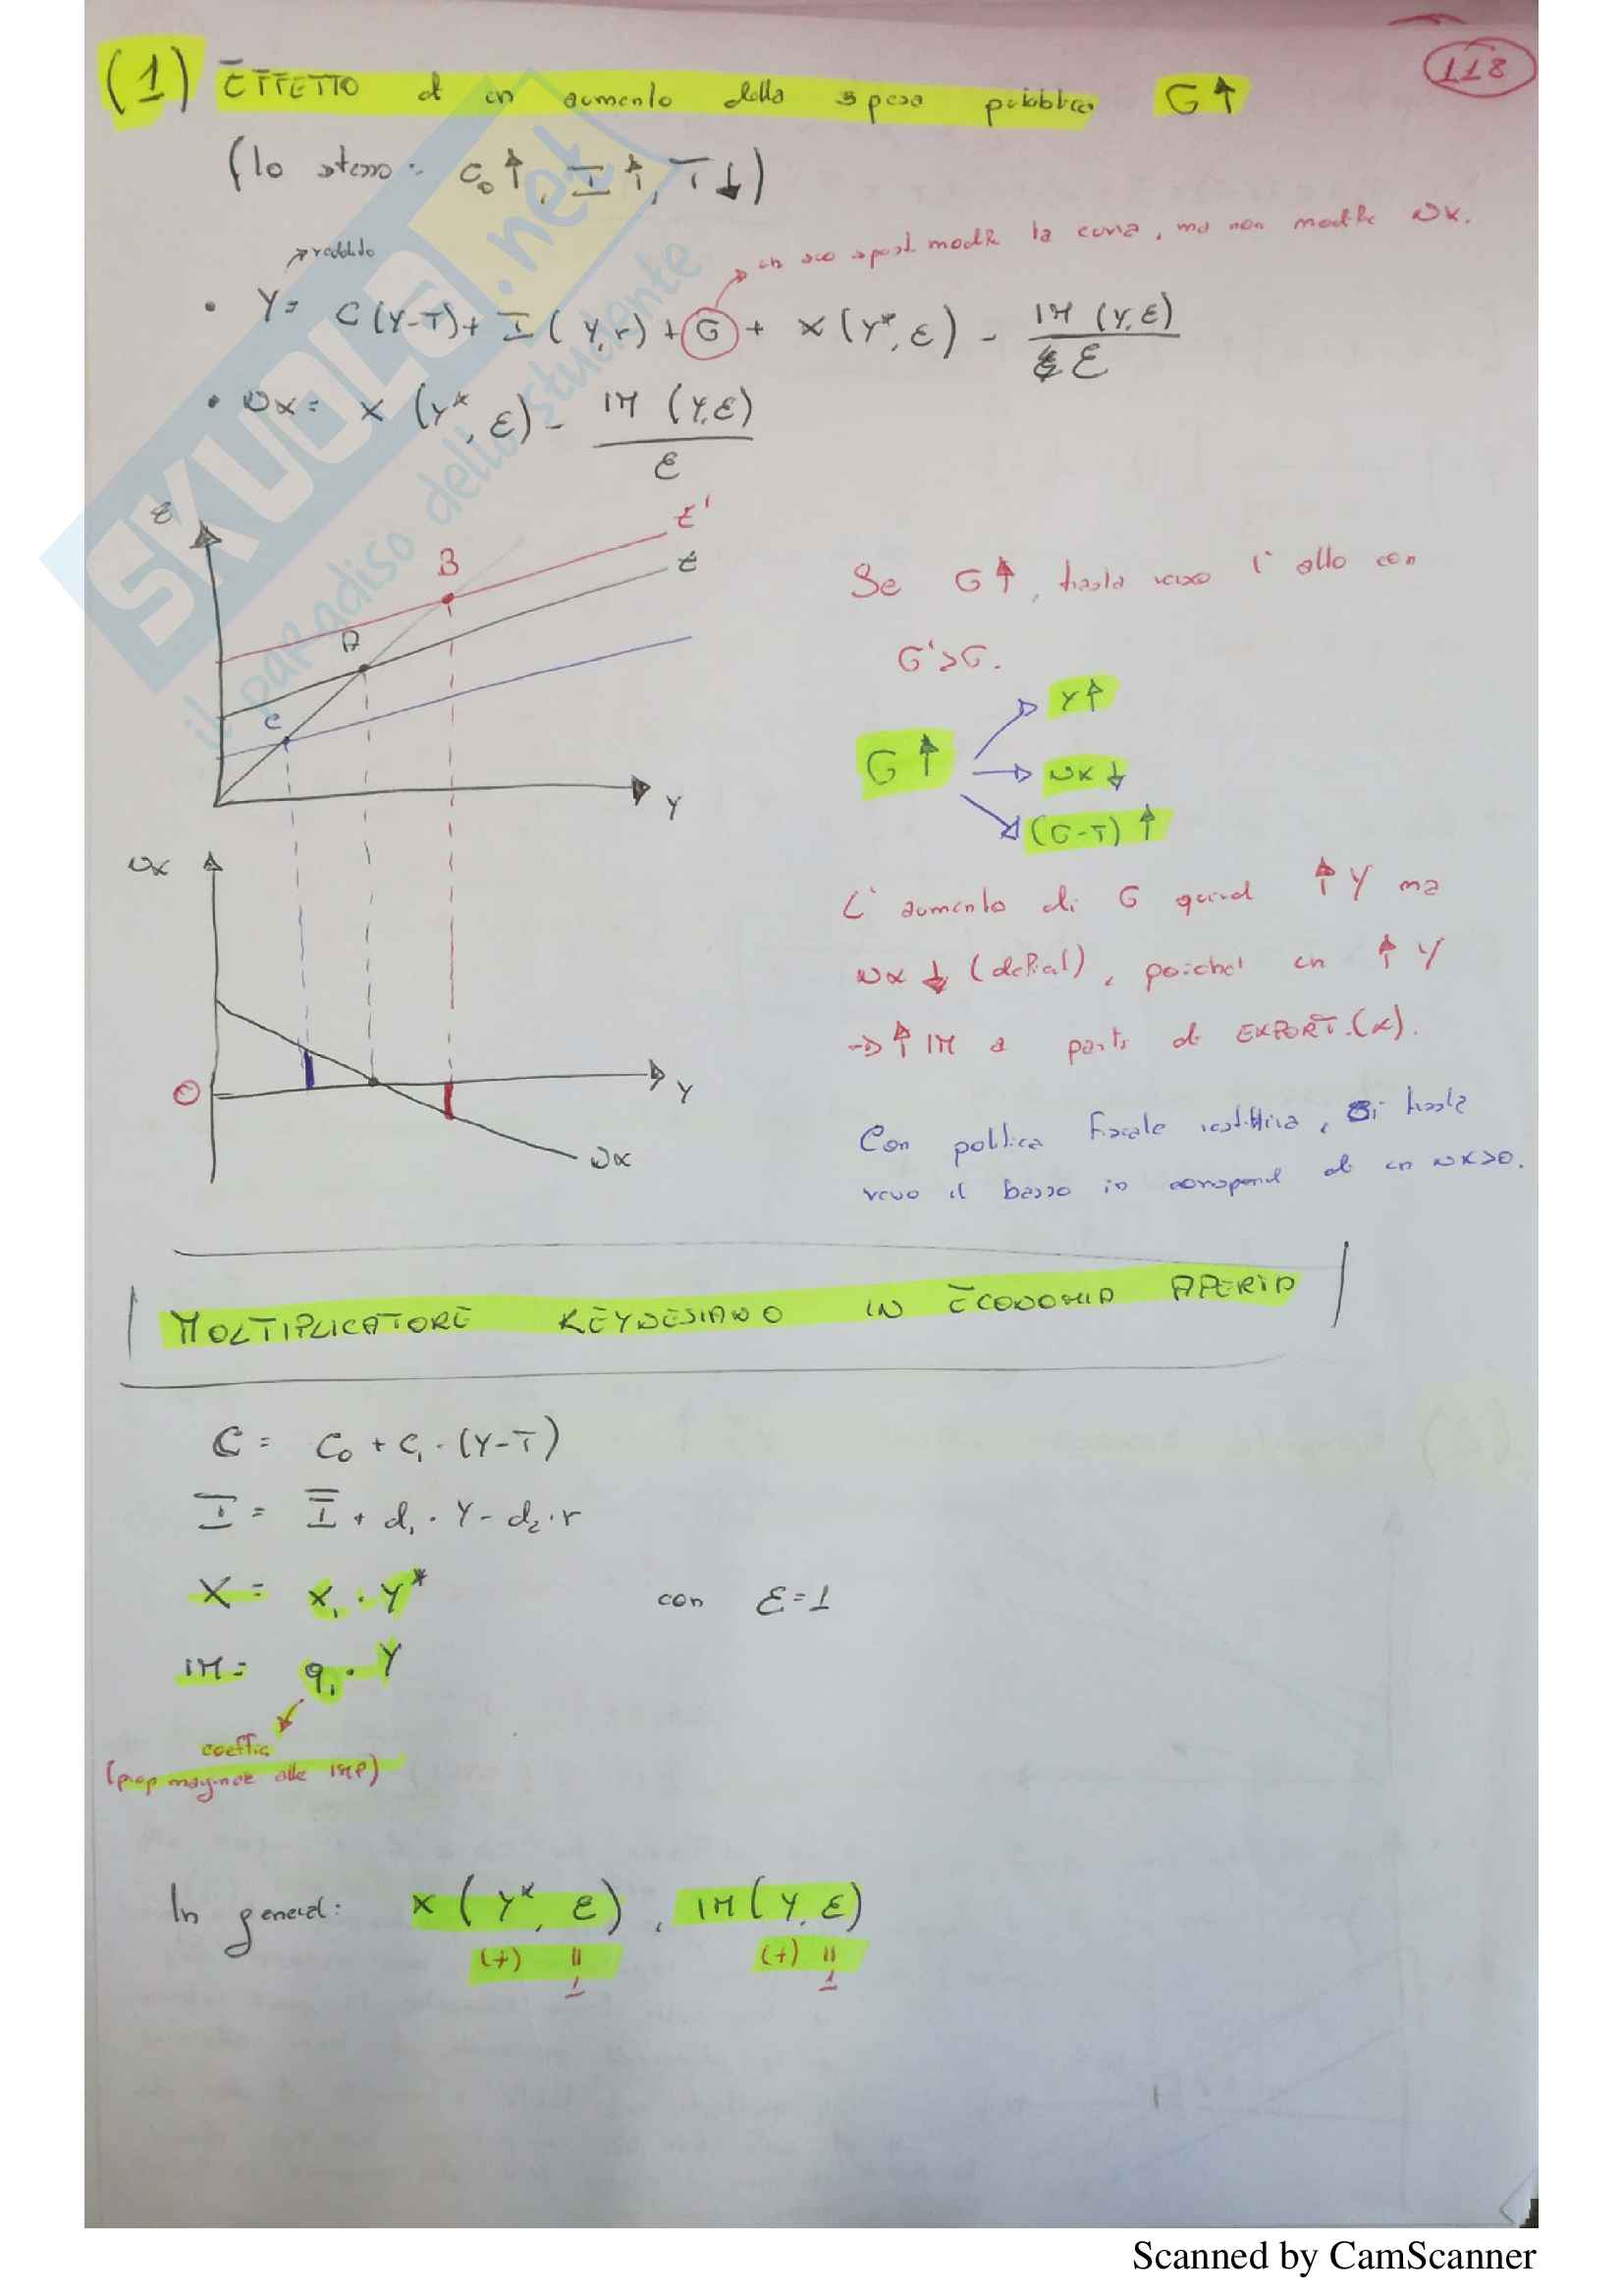 118
(1) EFFETTO di un aumento della spesa pubblica G↑
(lo stesso: C₀↑, I↑, T↓)
→ reddito
un suo spost. modif. la curva, ma non modific NX.
• Y= C(Y-T)+ I(Y,r) + G + X(Y*,ε) - IM(Y,ε)/ε
• NX= X(Y*,ε) - IM(Y,ε)/ε
ε
B
A
C
Y
NX
O
Y
NX
Se G↑, trasla verso l'alto con
G'>G.
G↑
Y↑
NX↓
(G-T)↑
L'aumento di G quindi ↑Y ma
NX↓ (deficit), poiché un ↑Y
→ ↑IM a parità di EXPORT.(X).
Con politica fiscale restrittiva, si trasla
verso il basso in corrispond di un NX>0.
MOLTIPLICATORE KEYNESIANO IN ECONOMIA APERTA
C = C₀ + C₁ · (Y-T)
I = Ī + d₁ · Y - d₂ · r
X = x₁ · Y*
con ε=1
IM= q₁ · Y
coeffic
(prop marginale alle IMP)
In general: X(Y*, ε), IM(Y,ε)
(+) 11 (+) 11
1 1
SKUOLA.net
il paradiso dello studente
Scanned by CamScanner